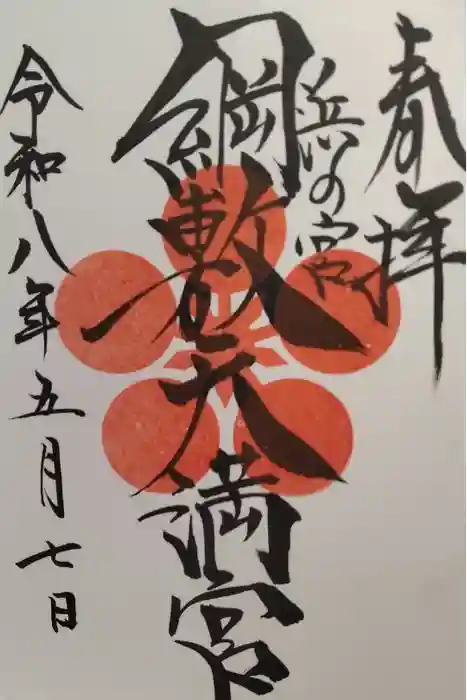 春拝
浜の宮
綱敷天満宮
令和八年五月七日